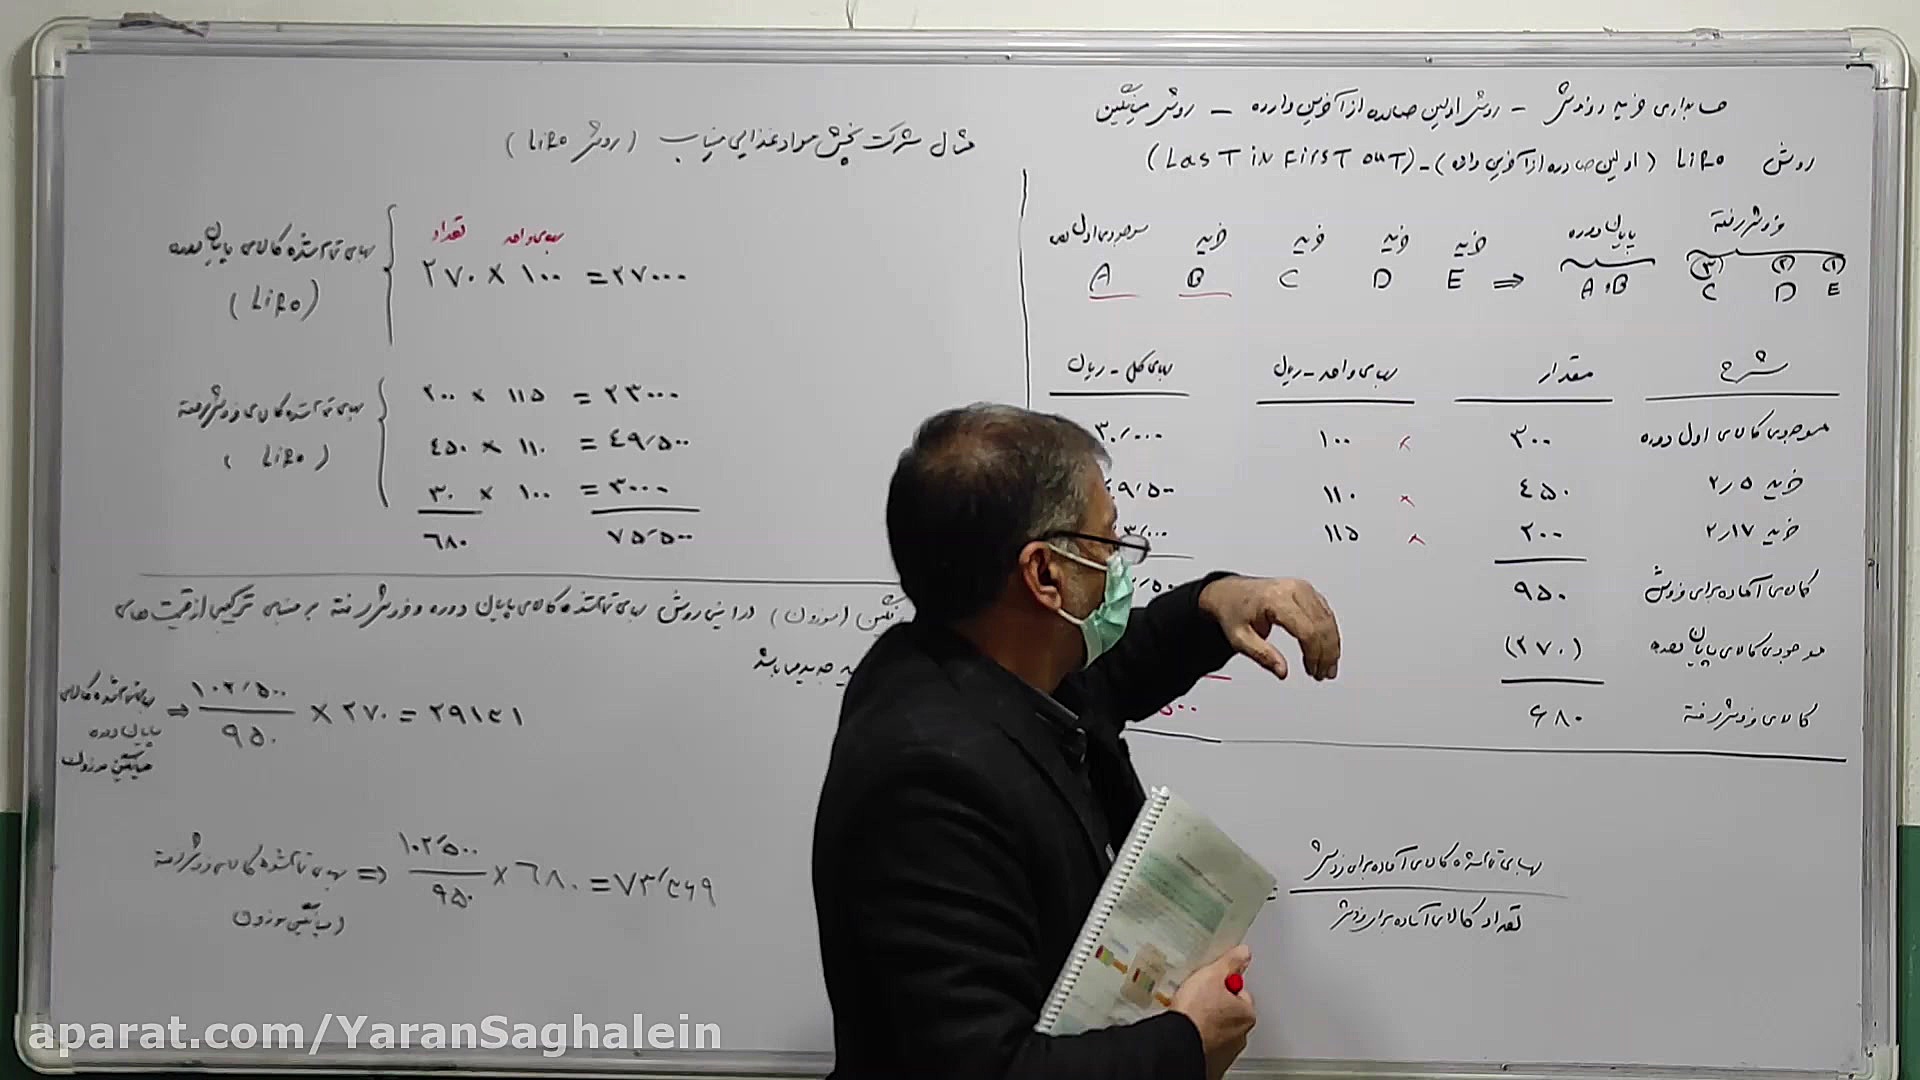 حسابداری خرید و فروش - روش اولین صادره از آخرین وارده - روش میانگین
روش LiFo (اولین صادره از آخرین وارده) - (Last in First out)
موجودی اول دوره خرید خرید خرید خرید پایان دوره فروش رفته
A B C D E ⇒ A,B (۳) C (۲) D (۱) E
شرح مقدار بهای واحد - ریال بهای کل - ریال
موجودی کالای اول دوره ۳۰۰ × ۱۰۰ ۳۰٬۰۰۰
خرید ۲٫۵ ۴۵۰ × ۱۱۰ ۹٬۵۰۰
خرید ۲٫۱۷ ۲۰۰ × ۱۱۵ ۳٬۰۰۰
کالای آماده برای فروش ۹۵۰
موجودی کالای پایان دوره (۲۷۰)
کالای فروش رفته ۶۸۰
بهای تمام شده کالای آماده برای فروش
تعداد کالای آماده برای فروش
مثال شرکت پخش مواد غذایی میناب (روش LiFo)
تعداد بهای واحد
بهای تمام شده کالای پایان دوره (LiFo) ۲۷۰ × ۱۰۰ = ۲۷۰۰۰
بهای تمام شده کالای فروش رفته (LiFo)
۲۰۰ × ۱۱۵ = ۲۳۰۰۰
۴۵۰ × ۱۱۰ = ۴۹٬۵۰۰
۳۰ × ۱۰۰ = ۳۰۰۰
۶۸۰ ۷۵٬۵۰۰
(موزون) در این روش بهای تمام شده کالای پایان دوره و فروش رفته بر مبنای ترکیبی از قیمت های
جدید میباشد
بهای تمام شده کالای پایان دوره میانگین موزون ⇒ ۱۰۲٬۵۰۰ / ۹۵۰ × ۲۷۰ = ۲۹۱۳۱
بهای تمام شده کالای فروش رفته (میانگین موزون ⇒ ۱۰۲٬۵۰۰ / ۹۵۰ × ۶۸۰ = ۷۳٬۳۶۹
aparat.com/YaranSaghalein